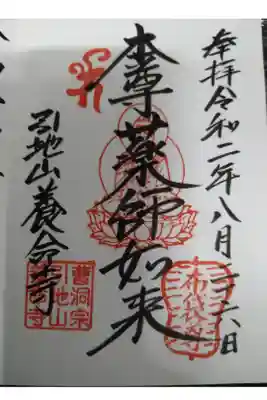 奉拝令和二年八月二六日
本尊薬師如来
引地山養命寺
布袋尊
曹洞宗
引地山
養命寺